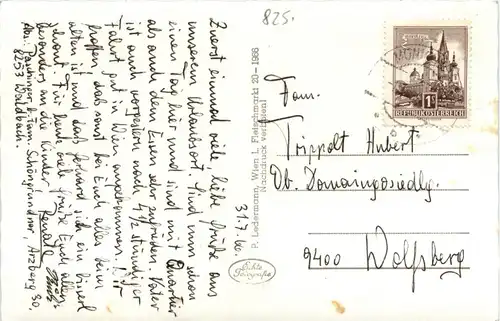 825.
Zuerst einmal viele liebe Grüße aus
unserem Urlaubsort. Sind nun schon
einen Tag hier und sind mit Quartier
als auch dem Essen sehr zufrieden. Vater
ist auch vorgestern nach 4 1/2 stündiger
Fahrt gut in Wien angekommen. Wir
hoffen, daß sonst bei Euch alles beim
alten ist und daß
schont. Für heute viele Grüße Euch allen
besonders an die Kinder Renate
Abs. Pauhinger b. Fam. Schöngrundner, Arzberg 30.
8253 Waldbach.
31.7.66.
P. Ledermann, Wien I, Fleischmarkt 20 - 1966
(Nachdruck verboten)
Echte
Fotografie
MARIAZELL
1S
REPUBLIK ÖSTERREICH
Fam.
Trippolt Hubert
Ob. Domaingosiedlg.
9400 Wolfsberg